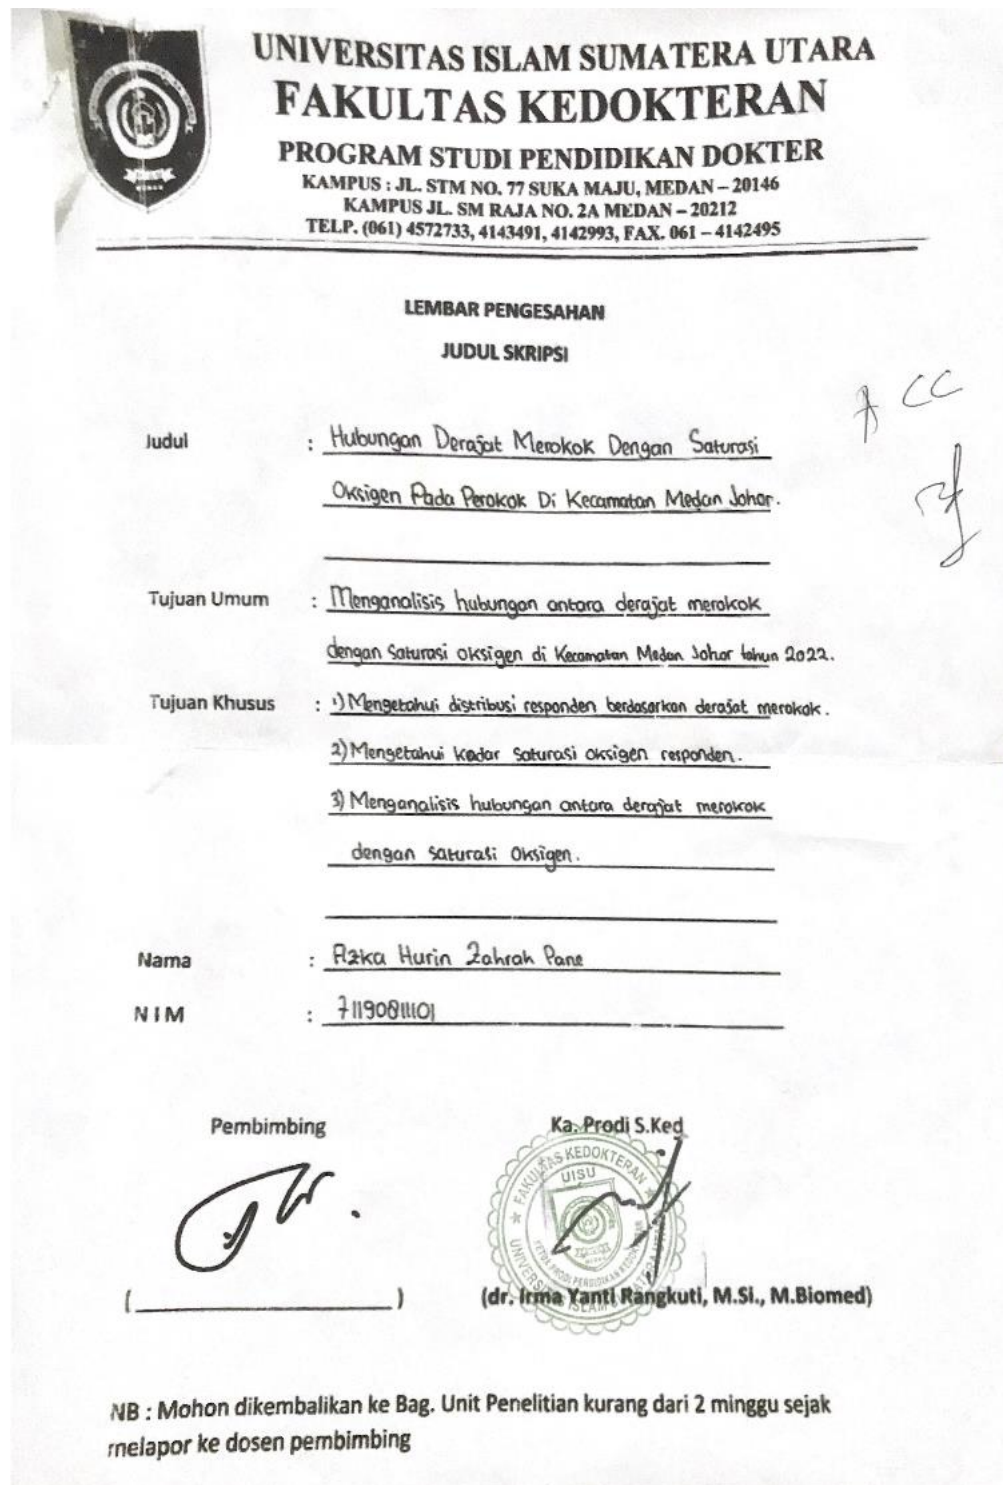 UNIVERSITAS ISLAM SUMATERA UTARA
FAKULTAS KEDOKTERAN
PROGRAM STUDI PENDIDIKAN DOKTER
KAMPUS : JL. STM NO. 77 SUKA MAJU, MEDAN – 20146
KAMPUS JL. SM RAJA NO. 2A MEDAN – 20212
TELP. (061) 4572733, 4143491, 4142993, FAX. 061 – 4142495
LEMBAR PENGESAHAN
JUDUL SKRIPSI
ACC
Judul : Hubungan Derajat Merokok Dengan Saturasi
Oksigen Pada Perokok Di Kecamatan Medan Johor.
Tujuan Umum : Menganalisis hubungan antara derajat merokok
dengan saturasi oksigen di Kecamatan Medan Johor tahun 2022.
Tujuan Khusus : 1) Mengetahui distribusi responden berdasarkan derajat merokok.
2) Mengetahui kadar saturasi oksigen responden.
3) Menganalisis hubungan antara derajat merokok
dengan saturasi Oksigen.
Nama : Azka Hurin Zahrah Pane
NIM : 71190811101
Pembimbing Ka. Prodi S.Ked
FAKULTAS KEDOKTERAN
UISU
(____________________) (dr. Irma Yanti Rangkuti, M.Si., M.Biomed)
NB : Mohon dikembalikan ke Bag. Unit Penelitian kurang dari 2 minggu sejak
melapor ke dosen pembimbing